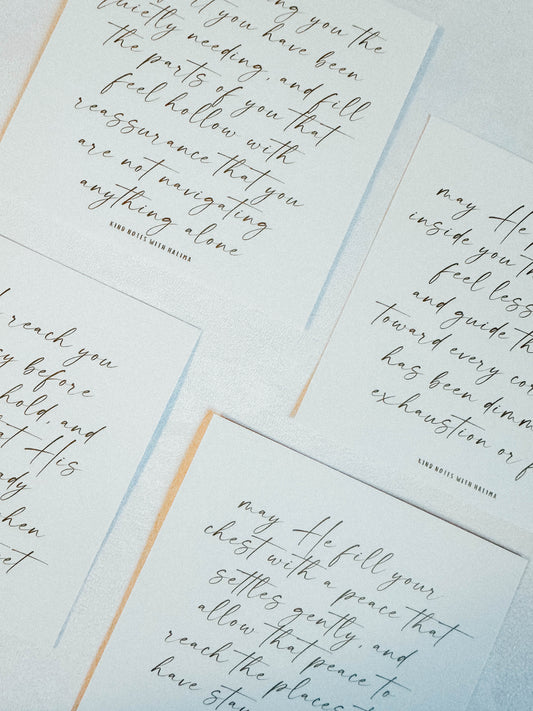 you the
you have been
quietly needing, and fill
the parts of you that
feel hollow with
reassurance that you
are not navigating
anything alone
KIND NOTES WITH HALIMA
may He
inside you th
feel less
and guide th
toward every cor
has been dimm
exhaustion or f
KIND NOTES WITH HALIMA
reach you
before
hold, and
at His
ady
hen
et
may He fill your
chest with a peace that
settles gently, and
allow that peace to
reach the places t
have stay